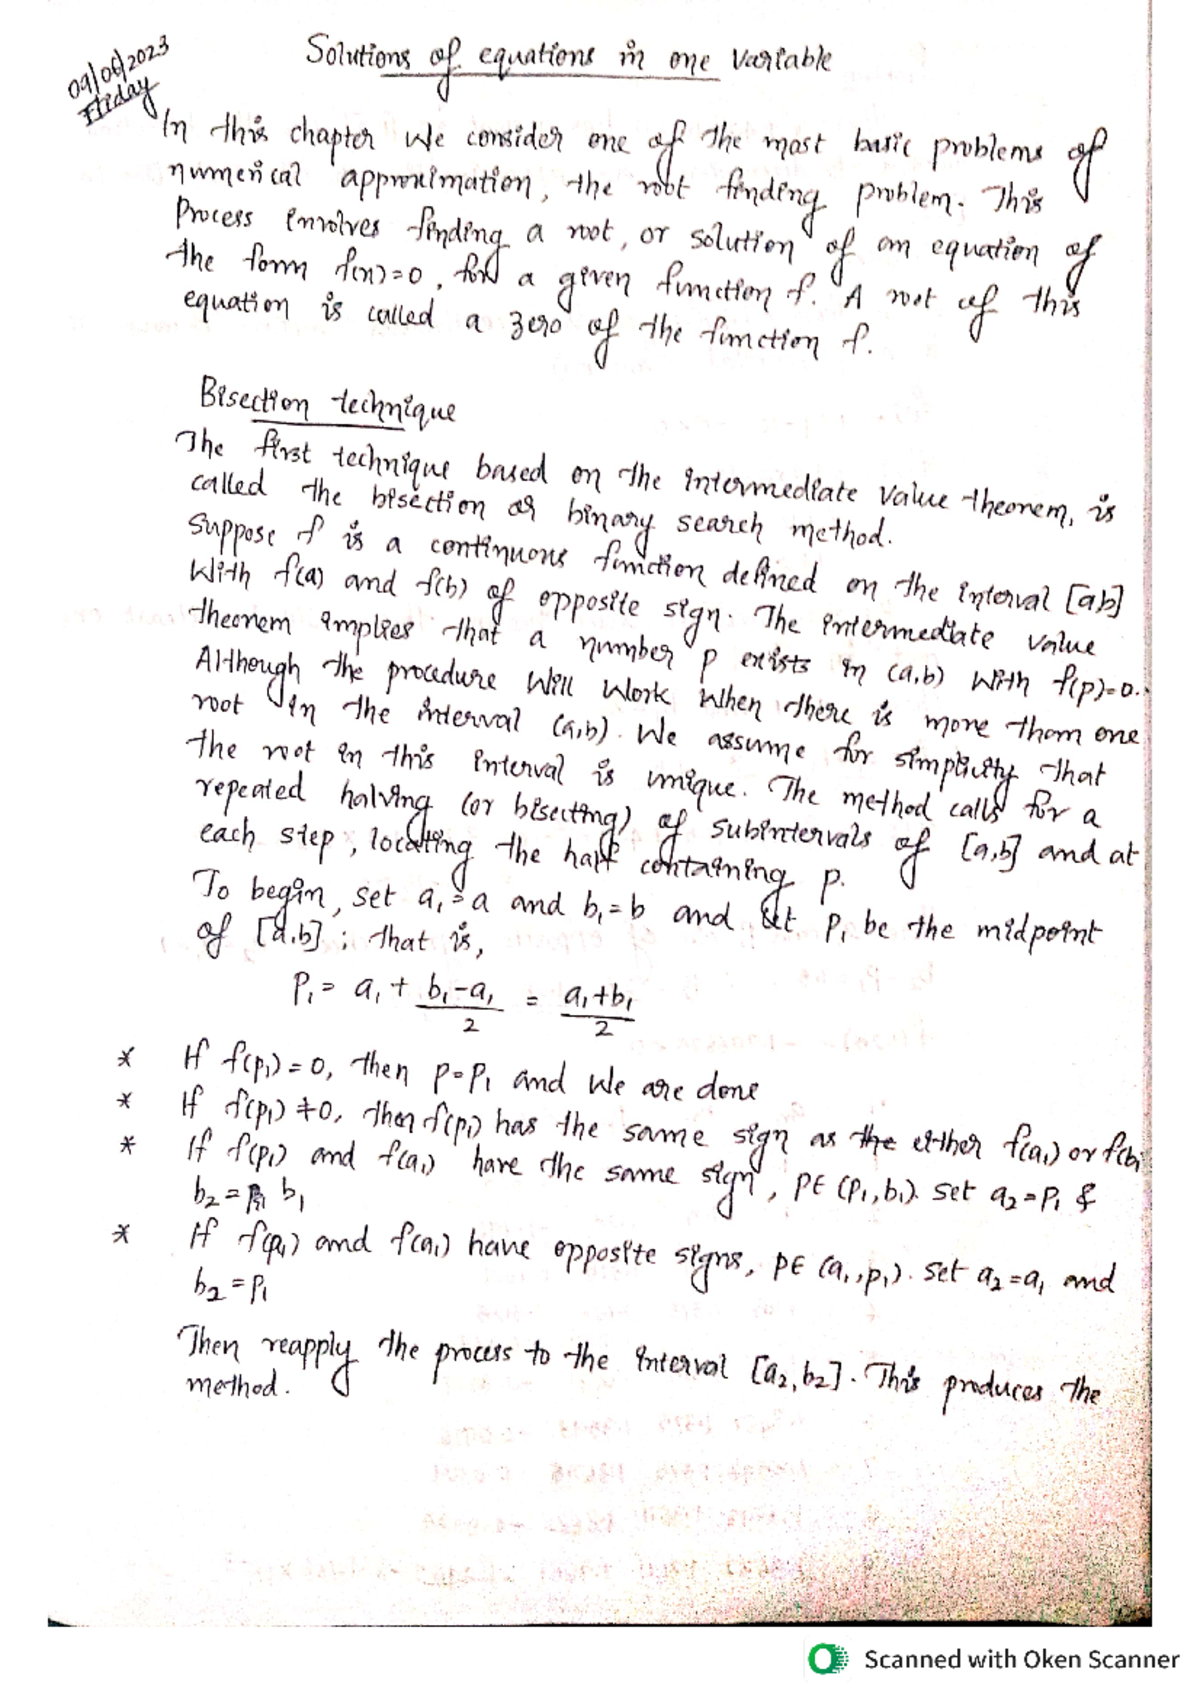 09/06/2023
Friday
Solutions of equations in one variable
In this chapter we consider one of the most basic problems of
numerical approximation, the root finding problem. This
Process involves finding a root, or solution of an equation of
the form f(x)=0, for a given function f. A root of this
equation is called a zero of the function f.
Bisection technique
The first technique based on the intermediate value theorem, is
called the bisection or binary search method.
Suppose f is a continuous function defined on the interval [a,b]
With f(a) and f(b) of opposite sign. The intermediate value
theorem implies that a number p exists in (a,b) with f(p)=0.
Although the procedure will work when there is more than one
root in the interval (a,b). We assume for simplicity that
the root in this interval is unique. The method calls for a
repeated halving (or bisecting) of subintervals of [a,b] and at
each step, locating the half containing p.
To begin, set a₁=a and b₁=b and let P₁ be the midpoint
of [a,b]; that is,
P₁ = a₁ + (b₁-a₁)/2 = (a₁+b₁)/2
* If f(p₁)=0, then p=p₁ and we are done
* If f(p₁)≠0, then f(p₁) has the same sign as the either f(a₁) or f(b₁
* If f(p₁) and f(a₁) have the same sign, p∈(p₁,b₁). Set a₂=p₁ &
b₂ = b₁
* If f(p₁) and f(a₁) have opposite signs, p∈(a₁,p₁). Set a₂=a₁ and
b₂=p₁
Then reapply the process to the interval [a₂,b₂]. This produces the
method.
Scanned with Oken Scanner